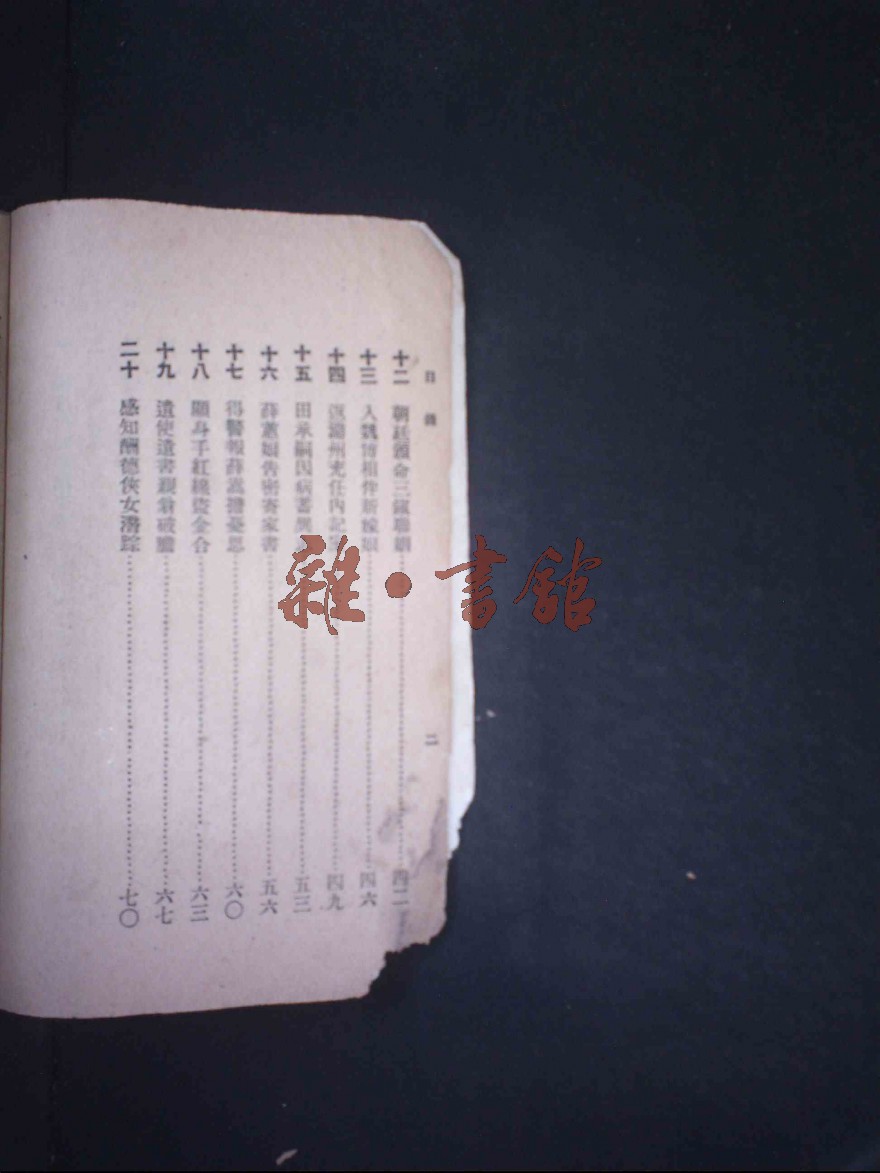 目錄
二
十二 朝廷頒命三鎮聯姻 四二
十三 入魏 相伴新嫁娘 四六
十四 返潞州充任內記 四九
十五 田承嗣因病蓄 五三
十六 薛蕙娟告密寄家書 五六
十七 得警報薛嵩擔憂思 六〇
十八 顯身手紅綫盜金合 六三
十九 遣使遺書親翁破膽 六七
二十 感知酬德俠女潛踪 七〇
雜·書館